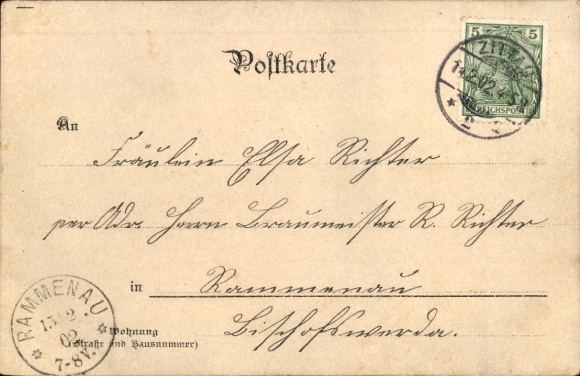 Postkarte
5 5
ZITTAU
REICHSPOST
An
Fräulein Elsa Richter
per Adr. Herrn Braumeister R. Richter
in Rammenau
Bischofswerda.
Wohnung
(Straße und Hausnummer)
RAMMENAU
15 2
02
7-8V.